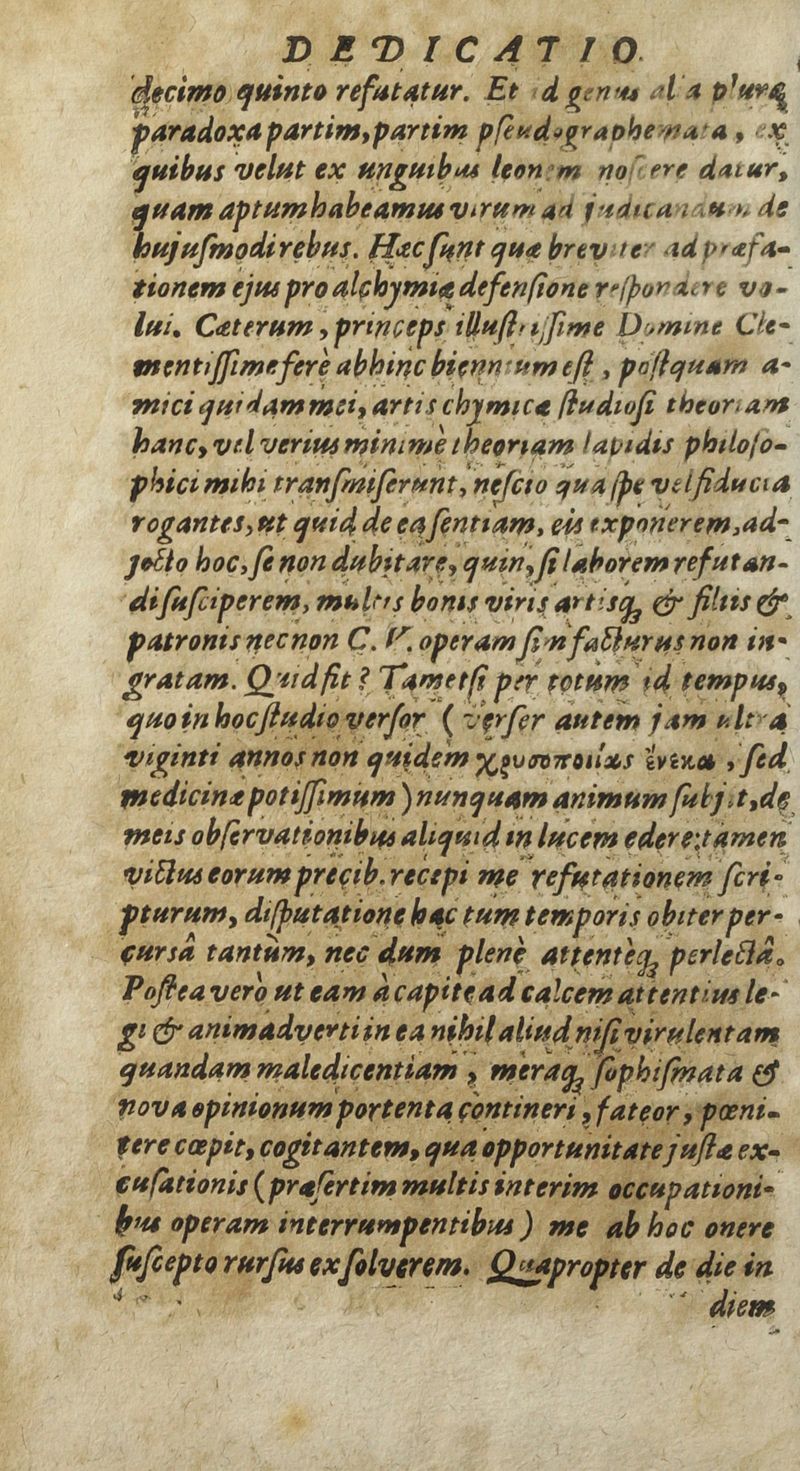 DEDICATIO.
decimo quinto refutatur. Et id genus alia pluraq́
paradoxa partim, partim pſeudographemata, ex
quibus velut ex unguibus leonem noſcere datur,
quam aptum habeamus virum ad judicandum de
hujuſmodi rebus. Hæc ſunt quæ breviter ad præfa-
tionem ejus pro alchymiæ defenſione reſpondere vo-
lui. Cæterum, princeps illuſtriſſime Domine Cle-
mentiſſime ferè abhinc biennium eſt, poſtquam a-
mici quidam mei, artis chymicæ ſtudioſi theoriam
hanc, vel verius minimè theoriam lapidis philoſo-
phici mihi tranſmiſerunt, neſcio qua ſpe vel fiducia
rogantes, ut quid de ea ſentiam, eis exponerem, ad-
jecto hoc, ſe non dubitare, quin, ſi laborem refutan-
di ſuſciperem, multis bonis viris artisq; & filiis &
patronis necnon C. V. operam ſim facturus non in-
gratam. Quid fit? Tametſi per totum id tempus,
quo in hoc ſtudio verſor (verſor autem jam ultra
viginti annos non quidem χρυσοποιίας ἕνεκα, ſed
medicinæ potiſſimum) nunquam animum ſubjit, de
meis obſervationibus aliquid in lucem edere: tamen
victus eorum precib. recepi me refutationem ſcri-
pturum, diſputatione hac tum temporis obiter per-
cursâ tantùm, nec dum plenè attentèq; perlectâ.
Poſtea verò ut eam à capite ad calcem attentius le-
gi & animadverti in ea nihil aliud niſi virulentam
quandam maledicentiam, meraq; ſophiſmata &
nova opinionum portenta contineri, fateor, pœni-
tere cœpit, cogitantem, qua opportunitate juſtæ ex-
cuſationis (præſertim multis interim occupationi-
bus operam interrumpentibus) me ab hoc onere
ſuſcepto rurſus exſolverem. Quapropter de die in
diem